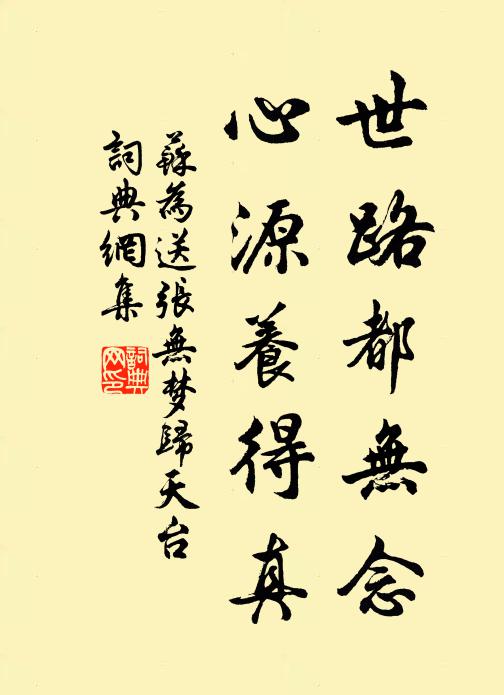 世路都無念
心源養得真
蘇為送張無梦歸天台
詞典網集
詞典
网印